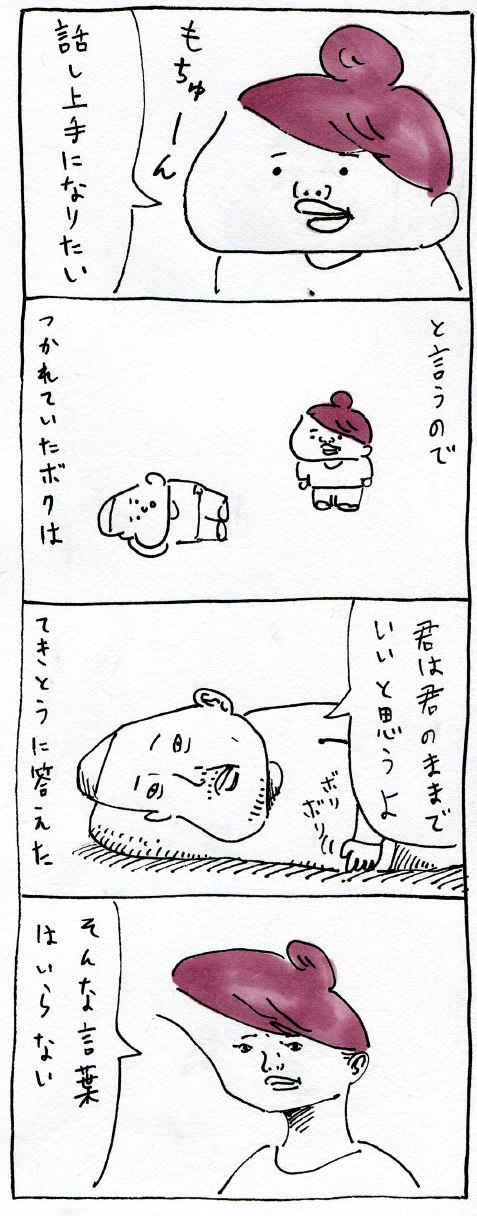 もちゅーん
話し上手になりたい
と言うので
つかれていたボクは
君は君のままで
いいと思うよ
ボリ
ボリ
てきとうに答えた
そんな言葉
はいらない